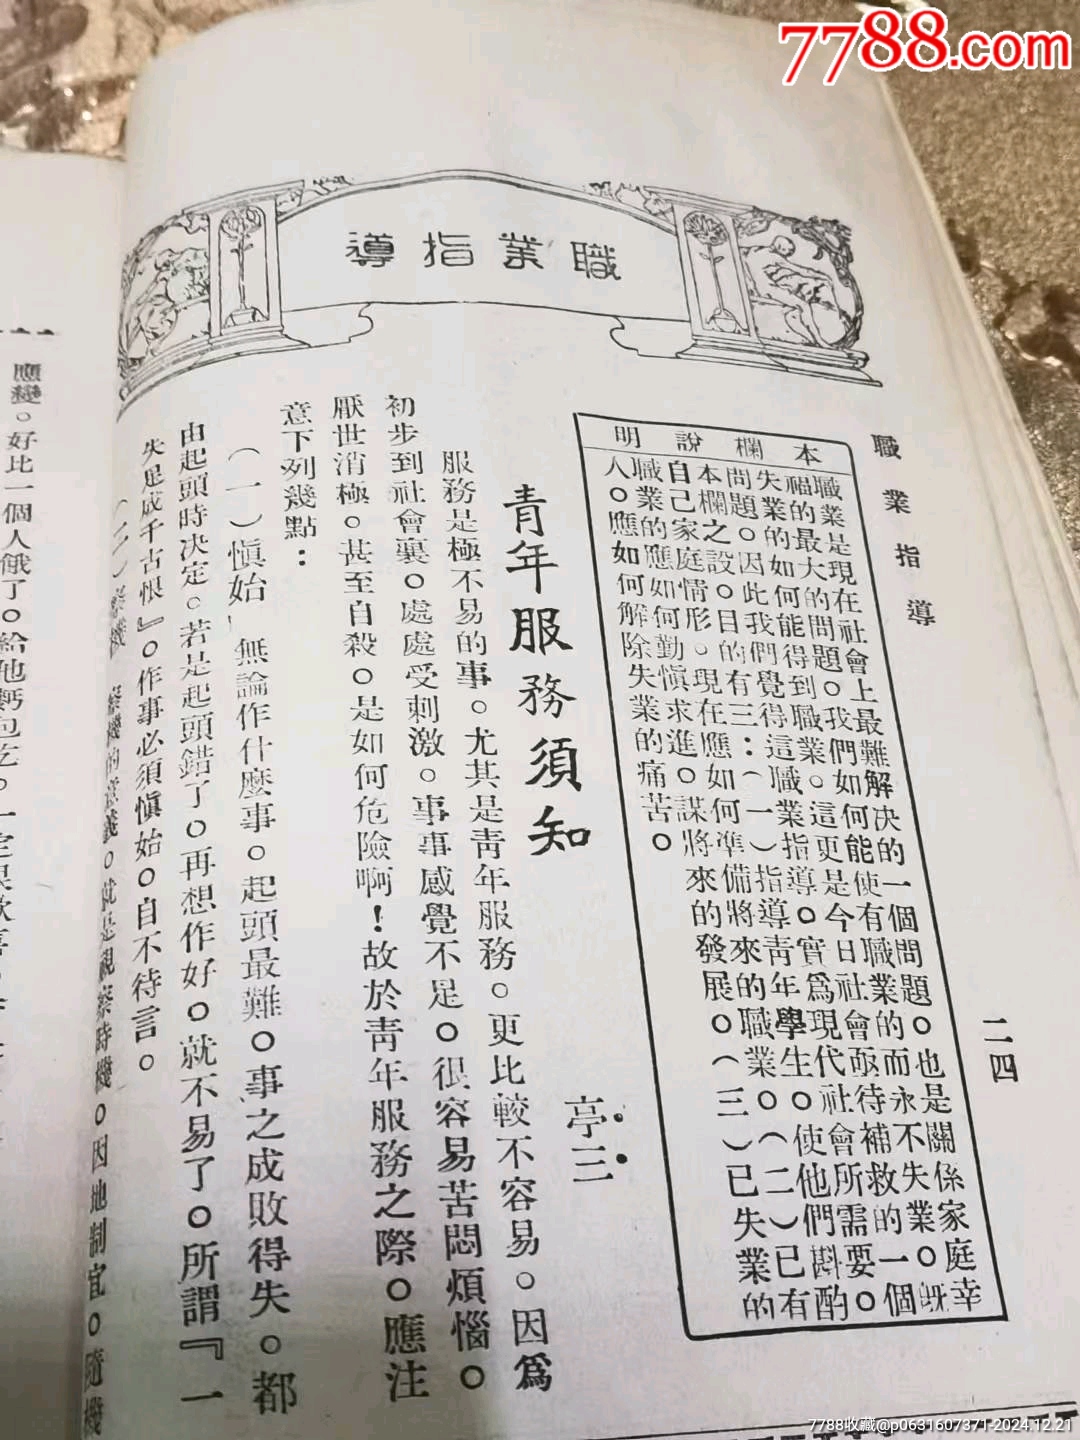 7788.com
職業指導
職業指導
二四
本欄說明
職業是現在社會上最難解決的一個問題。也是關係家庭幸
福的最大的問題。我們如何能使有職業的而永不失業。旣
失業的如何能得到職業。這更是今日社會亟待補救的一個
問題。因此我們覺得這職業指導。實爲現代社會所需要。
本欄之設。目的有三：（一）指導靑年學生。使他們斟酌
自己家庭情形。現在應如何準備將來的職業。（二）已有
職業的應如何勤愼求進。謀將來的發展。（三）已失業的
人。應如何解除失業的痛苦。
青年服務須知
亭三
服務是極不易的事。尤其是靑年服務。更比較不容易。因爲
初步到社會裏。處處受刺激。事事感覺不足。很容易苦悶煩惱。
厭世消極。甚至自殺。是如何危險啊！故於靑年服務之際。應注
意下列幾點：
（一）愼始　無論作什麼事。起頭最難。事之成敗得失。都
由起頭時決定。若是起頭錯了。再想作好。就不易了。所謂『一
失足成千古恨』。作事必須愼始。自不待言。
（二）察機　察機的意義。就是視察時機。因地制宜。隨機
應變。好比一個人餓了。給他麪包吃。一定
7788收藏@p0631607371-2024.12.21